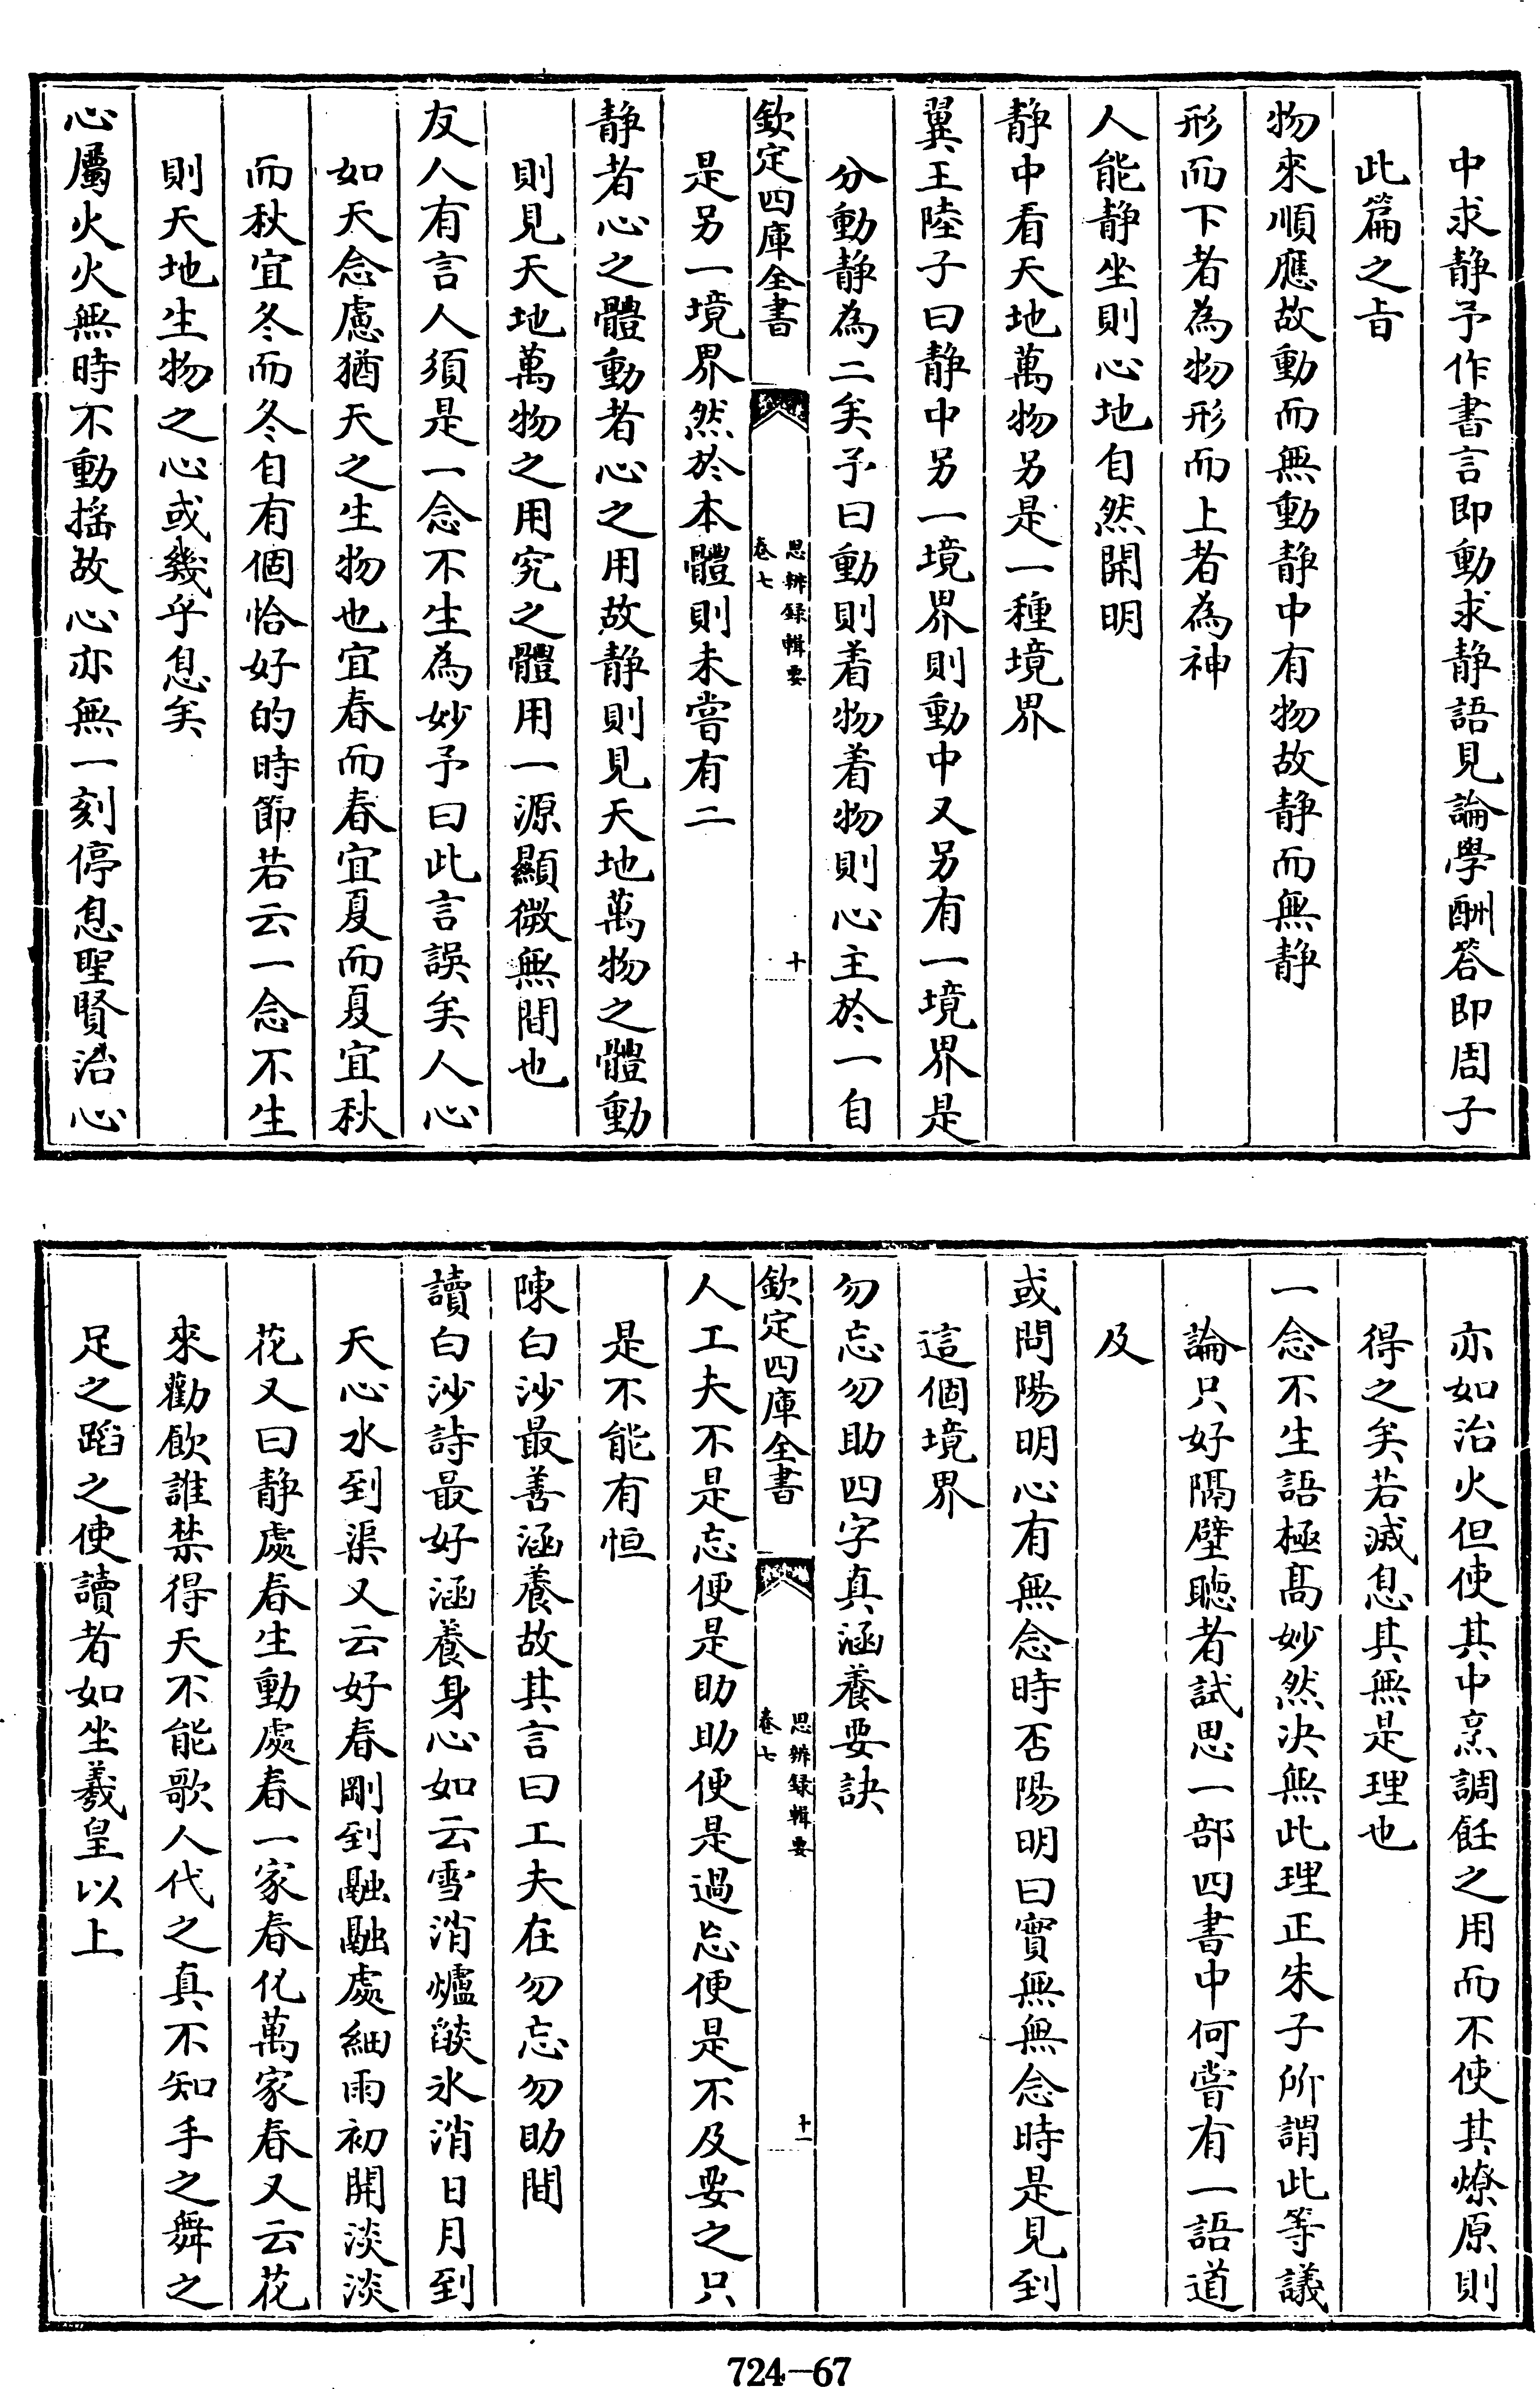 中求静予作書言即動求静語見論學酬答即周子
此篇之㫖
物來順應故動而無動静中有物故静而無静
形而下者為物形而上者為神
人能静坐則心地自然開明
静中看天地萬物另是一種境界
翼王陸子曰静中另一境界則動中又另有一境界是
分動静為二矣予曰動則着物着物則心主於一自
欽定四庫全書
思辨録輯要
卷七
十
是另一境界然於本體則未嘗有二
静者心之體動者心之用故静則見天地萬物之體動
則見天地萬物之用究之體用一源顯微無間也
友人有言人須是一念不生為妙予曰此言誤矣人心
如天念慮猶天之生物也宜春而春宜夏而夏宜秋
而秋宜冬而冬自有個恰好的時節若云一念不生
則天地生物之心或幾乎息矣
心屬火火無時不動揺故心亦無一刻停息聖賢治心
亦如治火但使其中烹調飪之用而不使其燎原則
得之矣若滅息其無是理也
一念不生語極髙妙然決無此理正朱子所謂此等議
論只好隔壁聽者試思一部四書中何嘗有一語道
及
或問陽明心有無念時否陽明曰實無無念時是見到
這個境界
勿忘勿助四字真涵養要訣
欽定四庫全書
思辨録輯要
卷七
十一
人工夫不是忘便是助助便是過忘便是不及要之只
是不能有恒
陳白沙最善涵養故其言曰工夫在勿忘勿助間
讀白沙詩最好涵養身心如云雪消爐燄氷消日月到
天心水到渠又云好春剛到融融處細雨初開淡淡
花又曰静處春生動處春一家春化萬家春又云花
來勸飲誰禁得天不能歌人代之真不知手之舞之
足之蹈之使讀者如坐羲皇以上
724-67